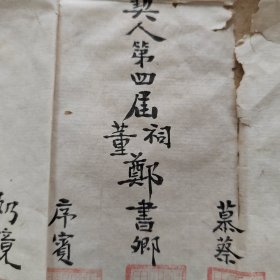 慕蔡
契人第四届祠董鄭書卿
序賓
鏡